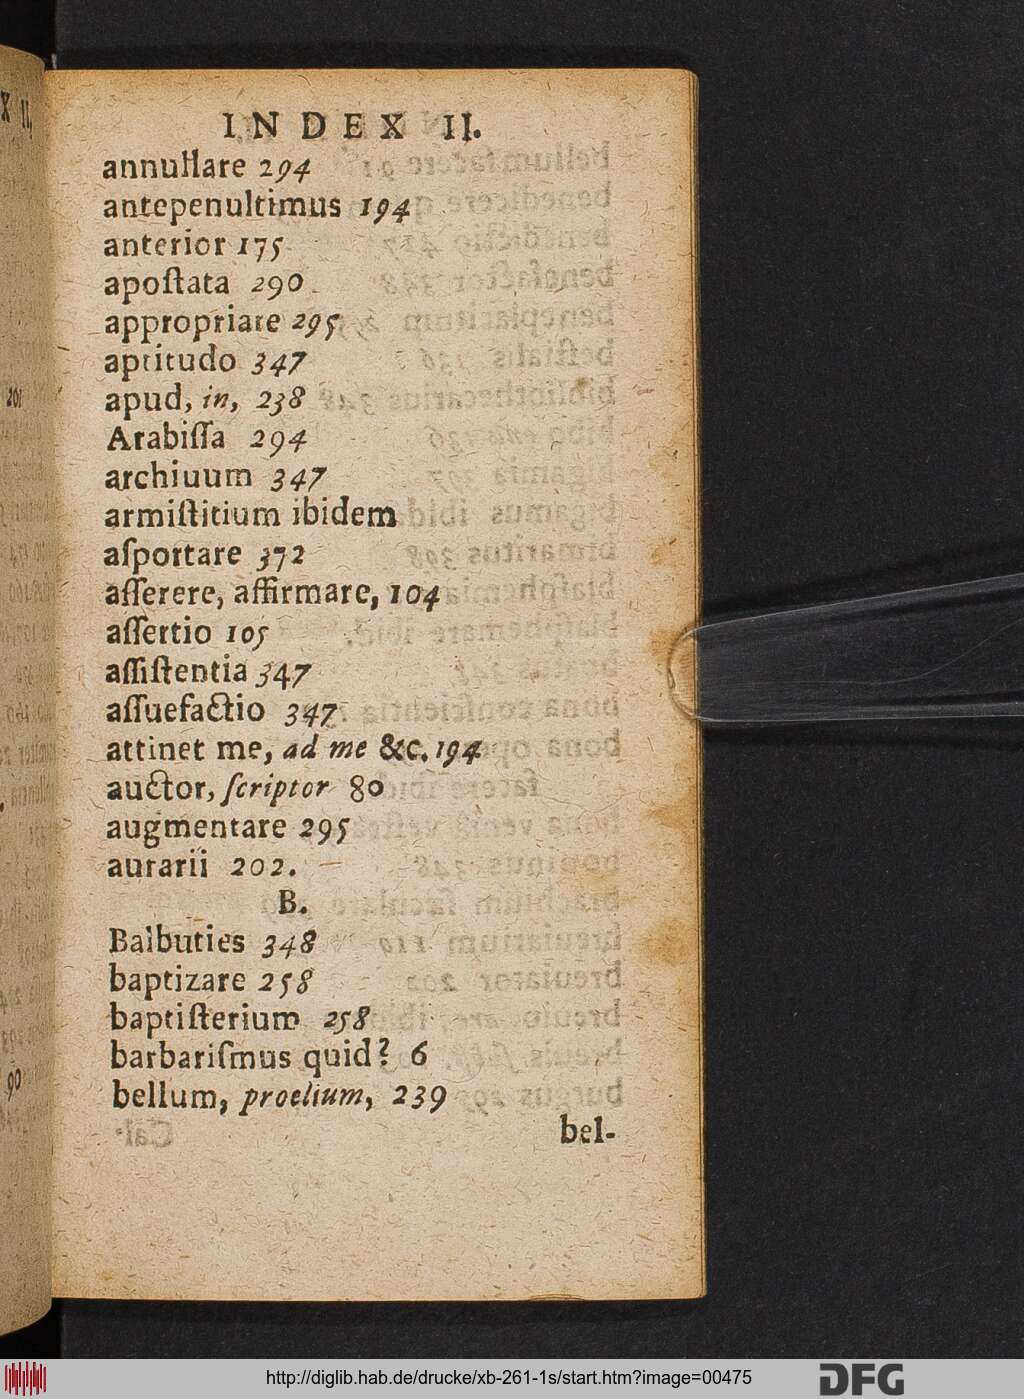 INDEX II.
annullare 294
antepenultimus 194
anterior 175
apoſtata 290
appropriare 295
aptitudo 347
apud, in, 238
Arabiſſa 294
archiuum 347
armiſtitium ibidem
aſportare 372
aſſerere, affirmare, 104
aſſertio 105
aſſiſtentia 347
aſſuefactio 347
attinet me, ad me &c. 194
auctor, ſcriptor 80
augmentare 295
aurarii 202.
B.
Balbuties 348
baptizare 258
baptiſterium 258
barbariſmus quid? 6
bellum, proelium, 239
bel-
http://diglib.hab.de/drucke/xb-261-1s/start.htm?image=00475
DFG